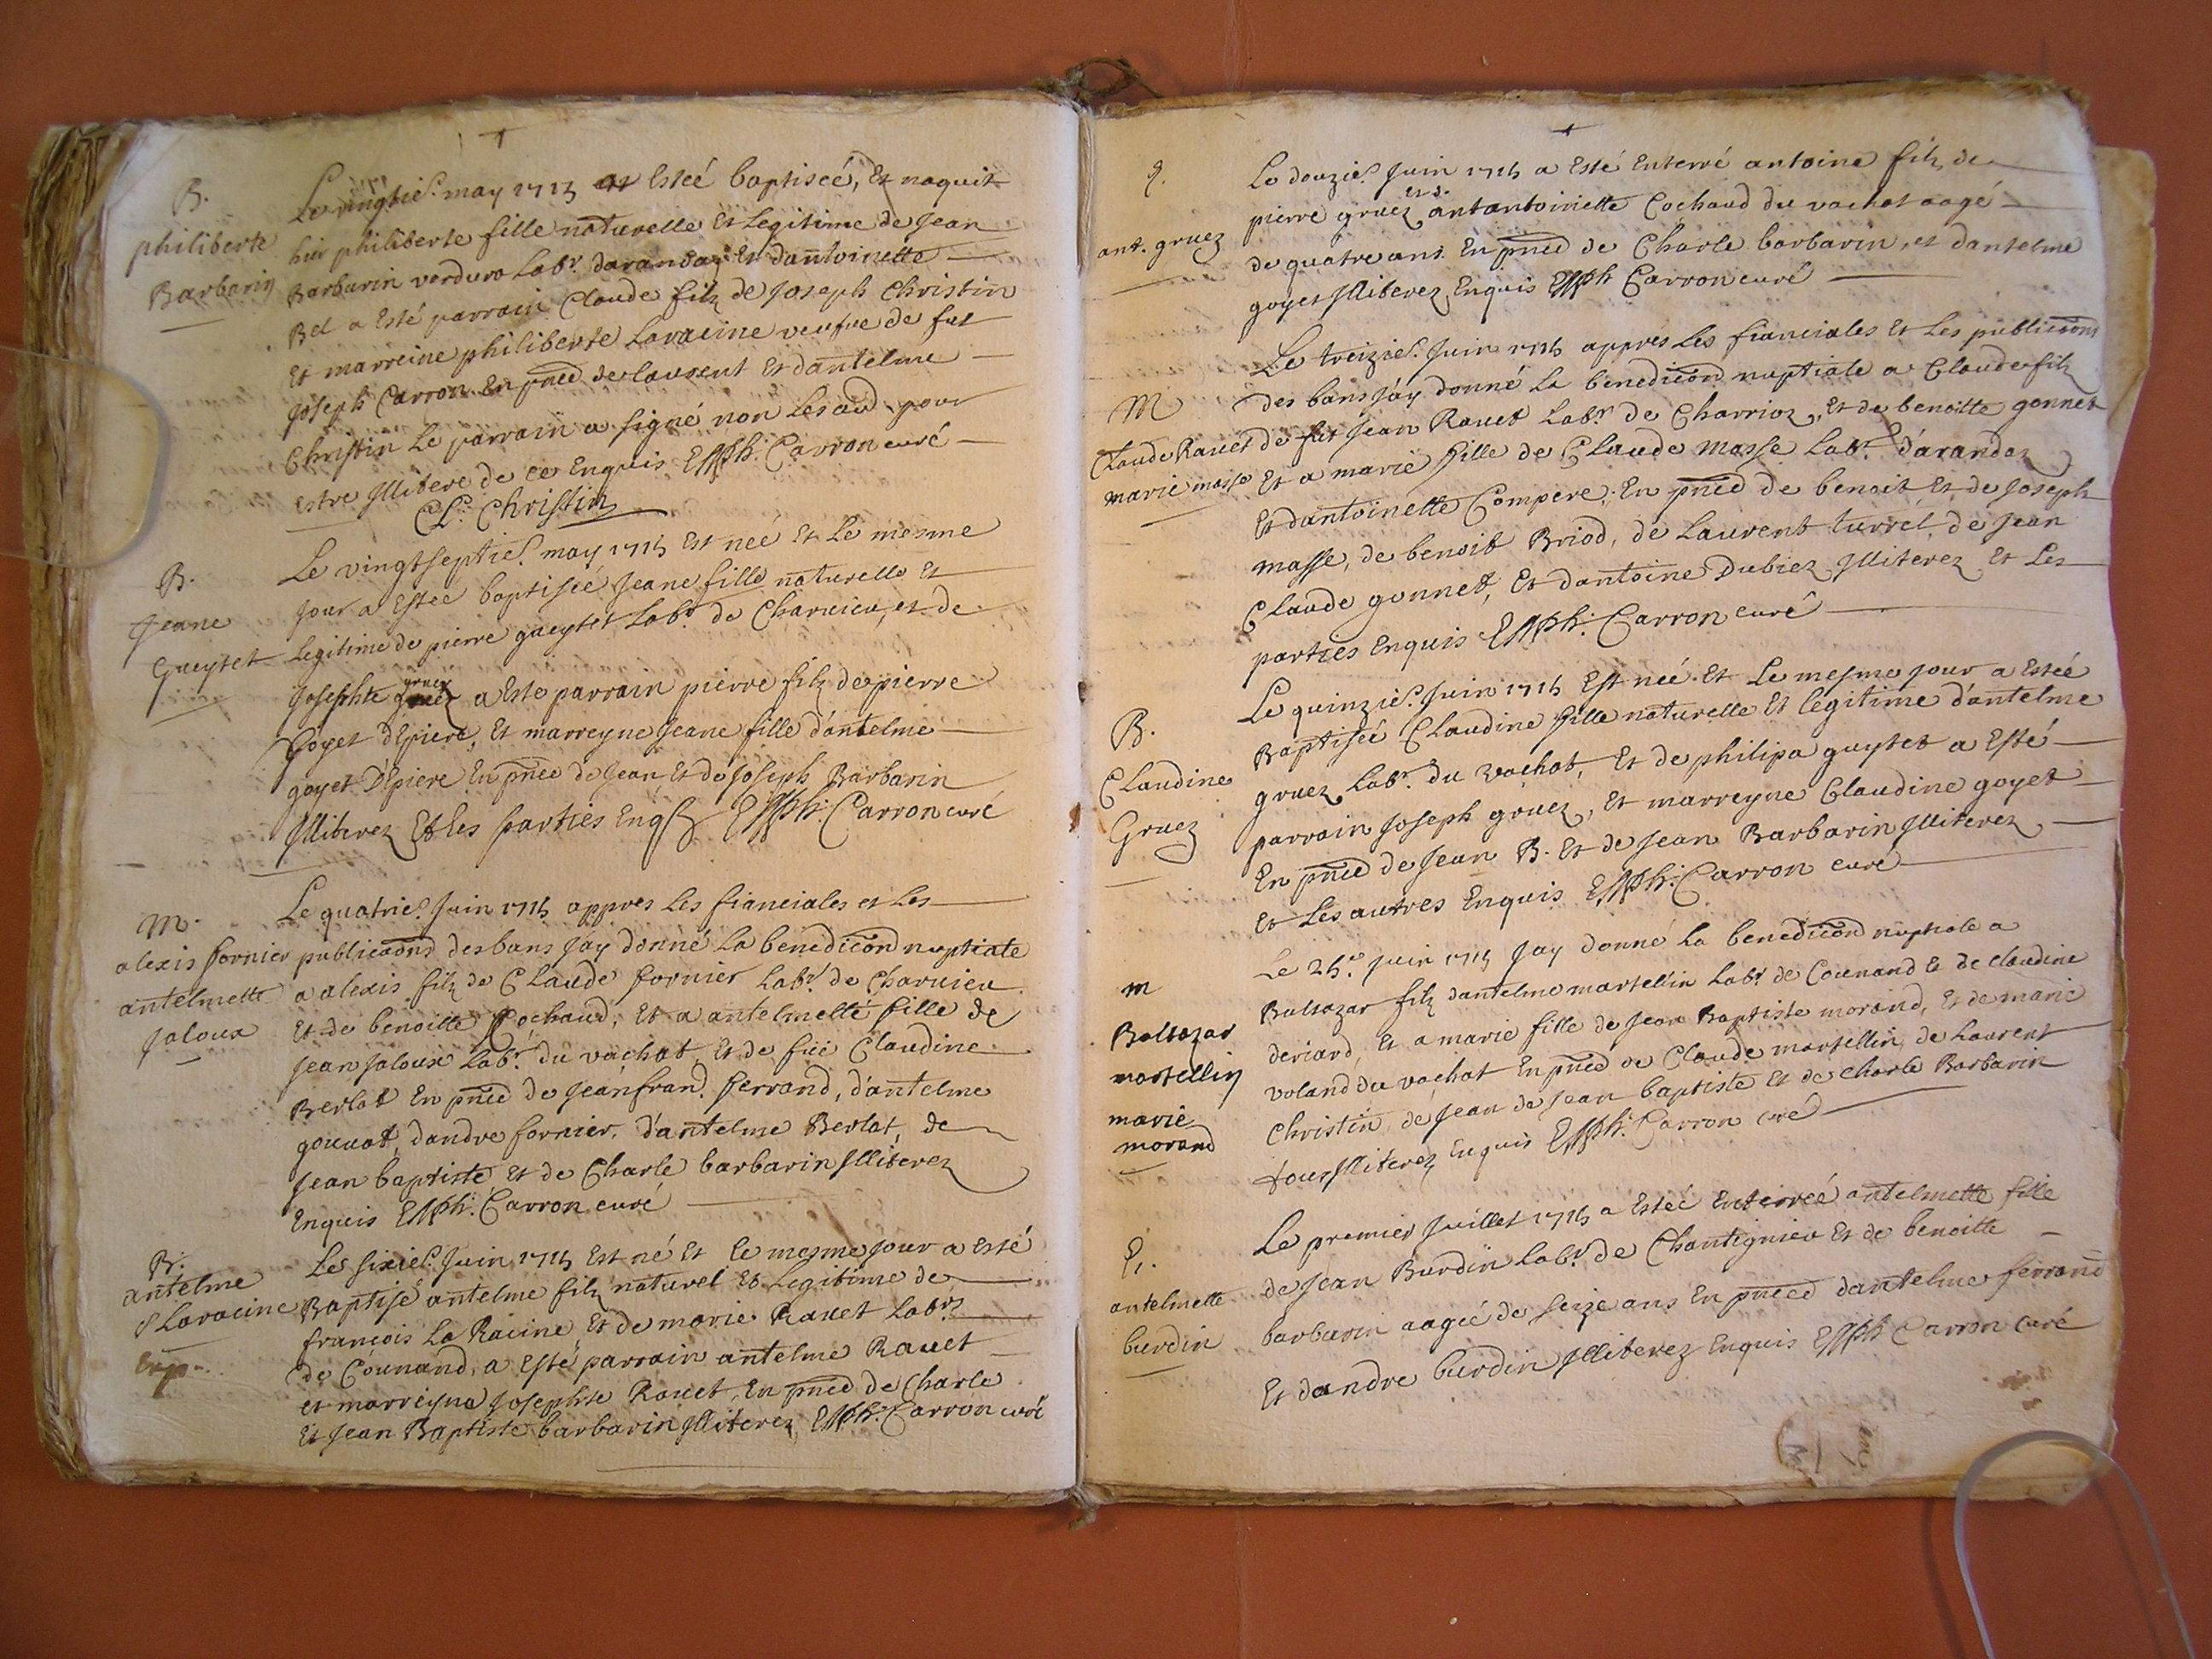 B.
philiberte
Barbarin
Le vingtie. may 1715 a Esteé baptiseé, Et naquit
hier philiberte fille naturelle Et Legitime de Jean
Barbarin verduro Labr. darandas Et dantoinette
Bel a Esté parrain Claude filz de Joseph Christin
Et marreine philiberte Laracine veufve de fut
Joseph Carron En pnce de Laurent Et dantelme
Christin Le parrain a signé non Les aud. pour
estre Illiteré de ce Enquis Carron curé
Cl. Christin
B.
Jeane
Gueytet
Le vingtseptie. may 1715 Est neé Et Le mesme
jour a Esteé baptiseé Jeane fille naturelle Et
Legitime de pierre gueytet Labr. de Charuieu, et de
Josephte gruez a Esté parrain pierre filz de pierre
Goyet d'Epiere, Et marreyne Jeane fille d'antelme
goyet D'Epiere En pnce de Jean Et de Joseph Barbarin
Illiterez Et Les parties Enq Carron curé
M.
alexis fornier
antelmette
Jaloux
Le quatrie. Juin 1715 appres Les fianciales et Les
publicaons des bans Jay donné La benedicion nuptiale
a alexis filz de Claude fornier Labr. de Charuieu
Et de benoitte Cochaud, Et a antelmette fille de
Jean Jaloux Labr. du vachat Et de fuë Claudine
Berlat En pnce de Jeanfrand. ferrand, d'antelme
gouuat, dandre fornier, d'antelme Berlat, de
Jean baptiste Et de Charle barbarin Illiterez
Enquis Carron curé
B.
antelme
Laracine
Les sixie. Juin 1715 Est né Et le mesme jour a Esté
Baptisé antelme filz naturel Et Legitime de
francois La Racine Et de marie Rauet Labrs
de Counand, a Esté parrain antelme Rauet
et marreyne Josephte Rauet, En pnce de Charle
Et Jean Baptiste barbarin Illiterez Carron curé
ant. gruez
Le douzie. Juin 1715 a Esté Enterré antoine filz de
pierre gruez et d. antoinette Cochaud du vachat aagé
de quatre ans. En pnce de Charle barbarin, et dantelme
goyet Illiterez Enquis Carron curé
M
Claude Rauet
marie masse
Le treizie. Juin 1715 appres Les fianciales Et Les publicaons
des bans Jay donné La benedicion nuptiale a Claude filz
de fut Jean Rauet Labr. de Charrioz, Et de benoitte gonnet
Et a marie fille de Claude Masse Labr. d'arandas
Et dantoinette Compere. En pnce de benoit Et de Joseph
masse, de benoit Briod, de Laurent turrel, de Jean
Claude gonnet, Et dantoine Dubiez Illiterez Et Les
parties Enquis Carron curé
B.
Claudine
Gruez
Le quinzie. Juin 1715 Est neé Et Le mesme jour a Esteé
Baptiseé Claudine fille naturelle Et legitime d'antelme
gruez Labr. du vachat, Et de philipa guytet a Esté
parrain Joseph gruez, Et marreyne Claudine goyet
En pnce de Jean B. Et de Jean Barbarin Illiterez
Et Les autres Enquis Carron curé
m
Baltazar
martellin
marie
morand
Le 25e. Juin 1715 Jay donné la benedicion nuptiale a
Baltazar filz dantelme martellin Labr. de Counand Et de claudine
deriard, Et a marie fille de Jean Baptiste morand, Et de marie
voland du vachat En pnce de Claude martellin, de Laurent
Christin, de Jean de Jean baptiste Et de Charle Barbarin
tous Illiterez Enquis Carron curé
E.
antelmette
burdin
Le premier Juillet 1715 a Esteé Enterreé antelmette fille
de Jean Burdin Labr. de Chantignieu Et de benoitte
barbarin aageé de seize ans En pnce dantelme ferrand
Et dandre burdin Illiterez Enquis Carron curé